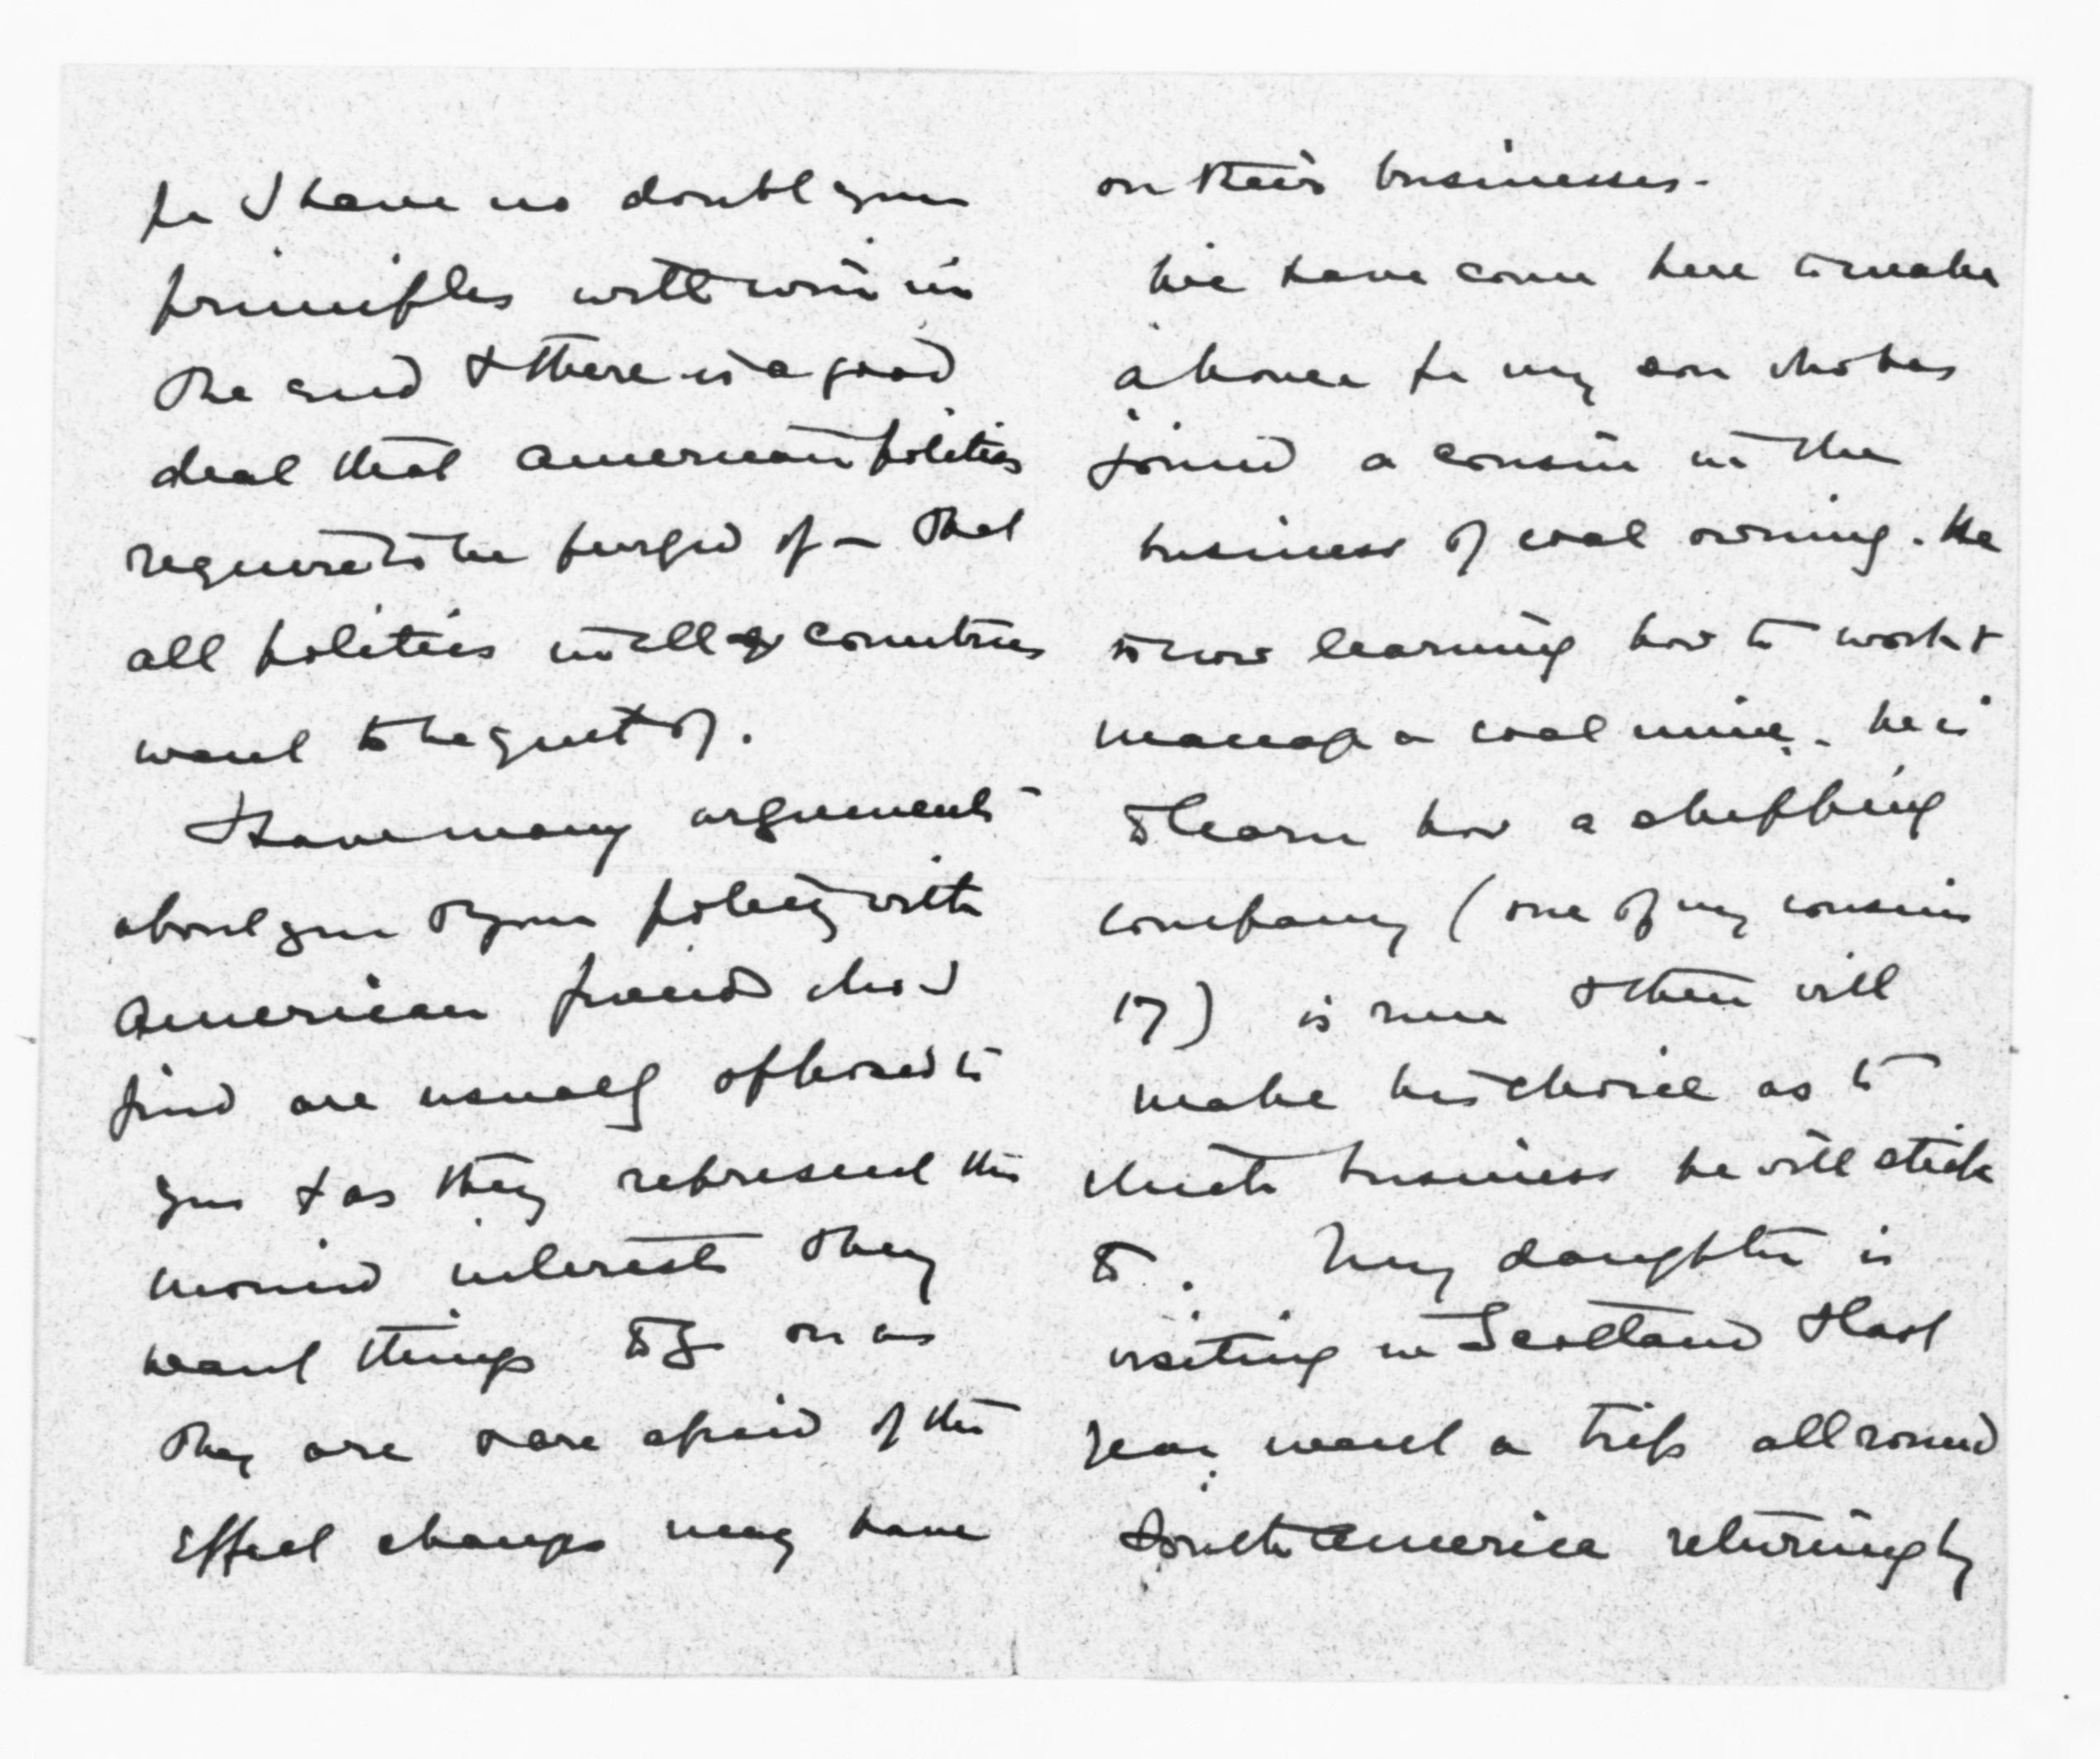 for I have no doubt your
principles will win in
the end & there is a good
deal that American politics
require to be purged of – that
all politics in all countries
want to be quit of.
I have many arguments
about you & your policy with
American friends who I
find are usually opposed to
you & as they represent the
monied interests they
want things to go on as
they are & are afraid of the
effect changes may have
on their businesses.
We have come here to make
a home for my son who has
joined a cousin in the
business of coal owning. He
is now learning how to work &
manage a coal mine. he is
to learn how a shipping
company (one of my cousins
is run & then will
make his choice as to
which business he will stick
to. My daughter is
visiting in Scotland & last
year went a trip all round
South America returning by